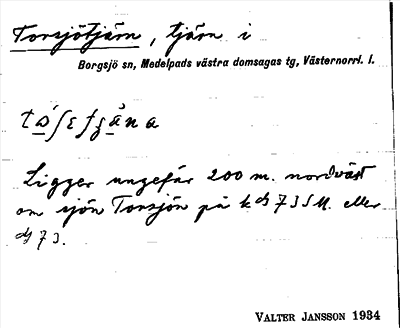 Torsjötjärn, tjärn i
Borgsjö sn, Medelpads västra domsagas tg, Västernorrl. l.
Ligger ungefär 200 m. nordväst
om sjön Torsjön på k eller
73.
VALTER JANSSON 1934